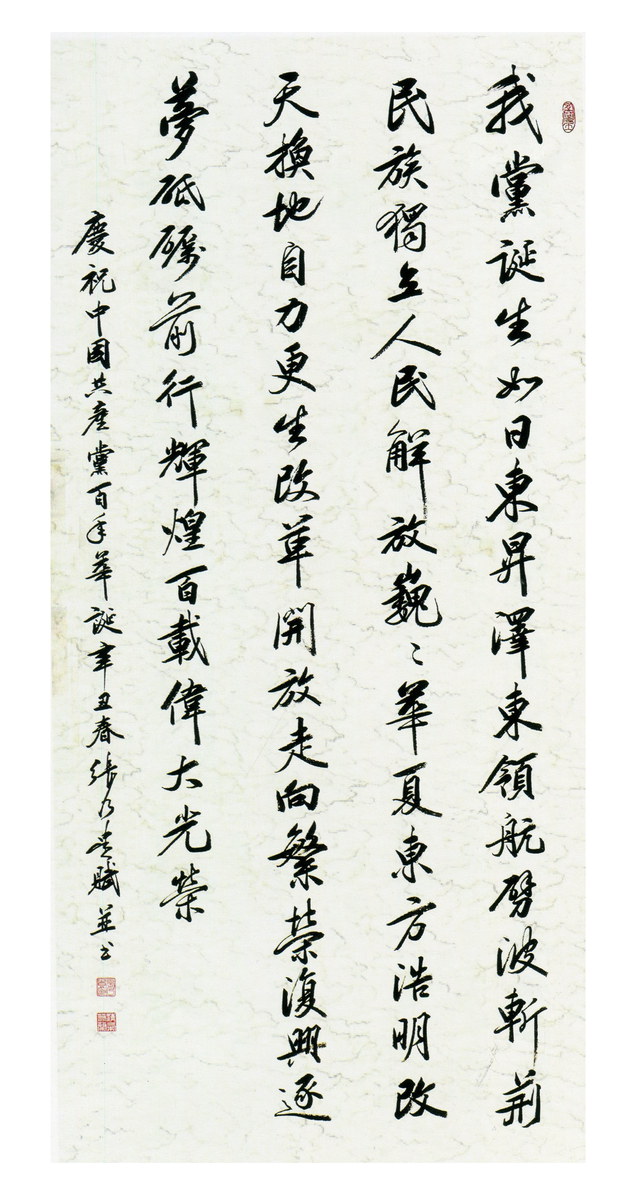 我黨誕生如日東昇澤東領航劈波斬荊
民族獨立人民解放巍〻華夏東方浩明改
天換地自力更生改革開放走向繁榮復興逐
夢砥礪前行輝煌百載偉大光榮
慶祝中国共產黨百年華誕辛丑春張乃賦並书